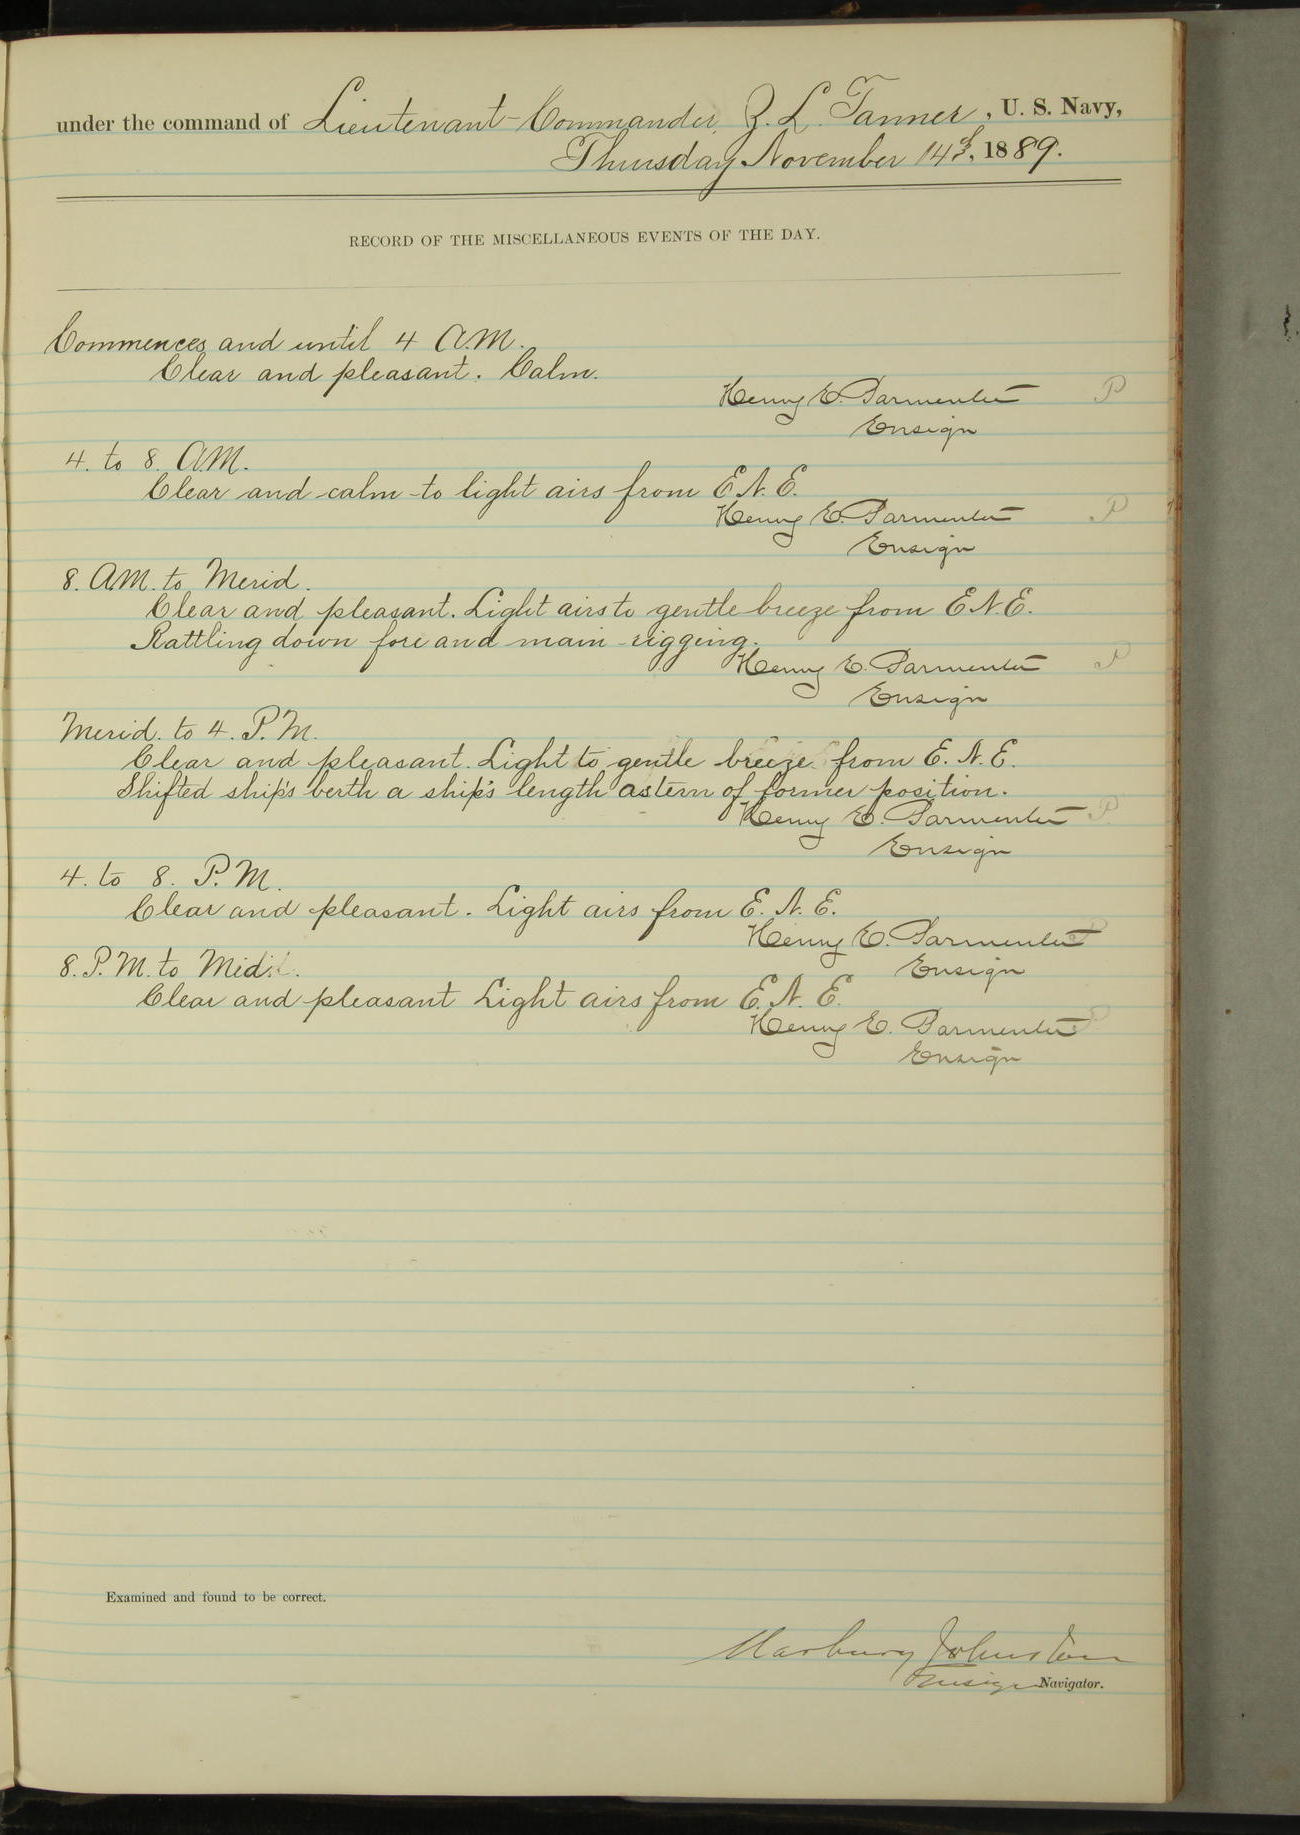 under the command of Lieutenant-Commander Z. L. Tanner, U. S. Navy,
Thursday November 14th, 1889.
RECORD OF THE MISCELLANEOUS EVENTS OF THE DAY.
Commences and until 4 A.M.
Clear and pleasant. Calm.
Henry E. Parmenter P
Ensign
4. to 8. A.M.
Clear and calm to light airs from E.N.E.
Henry E. Parmenter P
Ensign
8. A.M. to Merid.
Clear and pleasant. Light airs to gentle breeze from E.N.E.
Rattling down fore and main rigging.
Henry E. Parmenter P
Ensign
Merid. to 4. P.M.
Clear and pleasant. Light to gentle breeze from E. N. E.
Shifted ship's berth a ship's length astern of former position.
Henry E. Parmenter P
Ensign
4. to 8. P.M.
Clear and pleasant. Light airs from E. N. E.
Henry E. Parmenter P
8. P.M. to Mid.
Ensign
Clear and pleasant Light airs from E. N. E.
Henry E. Parmenter P
Ensign
Examined and found to be correct.
Marbury Johnston
Ensign Navigator.